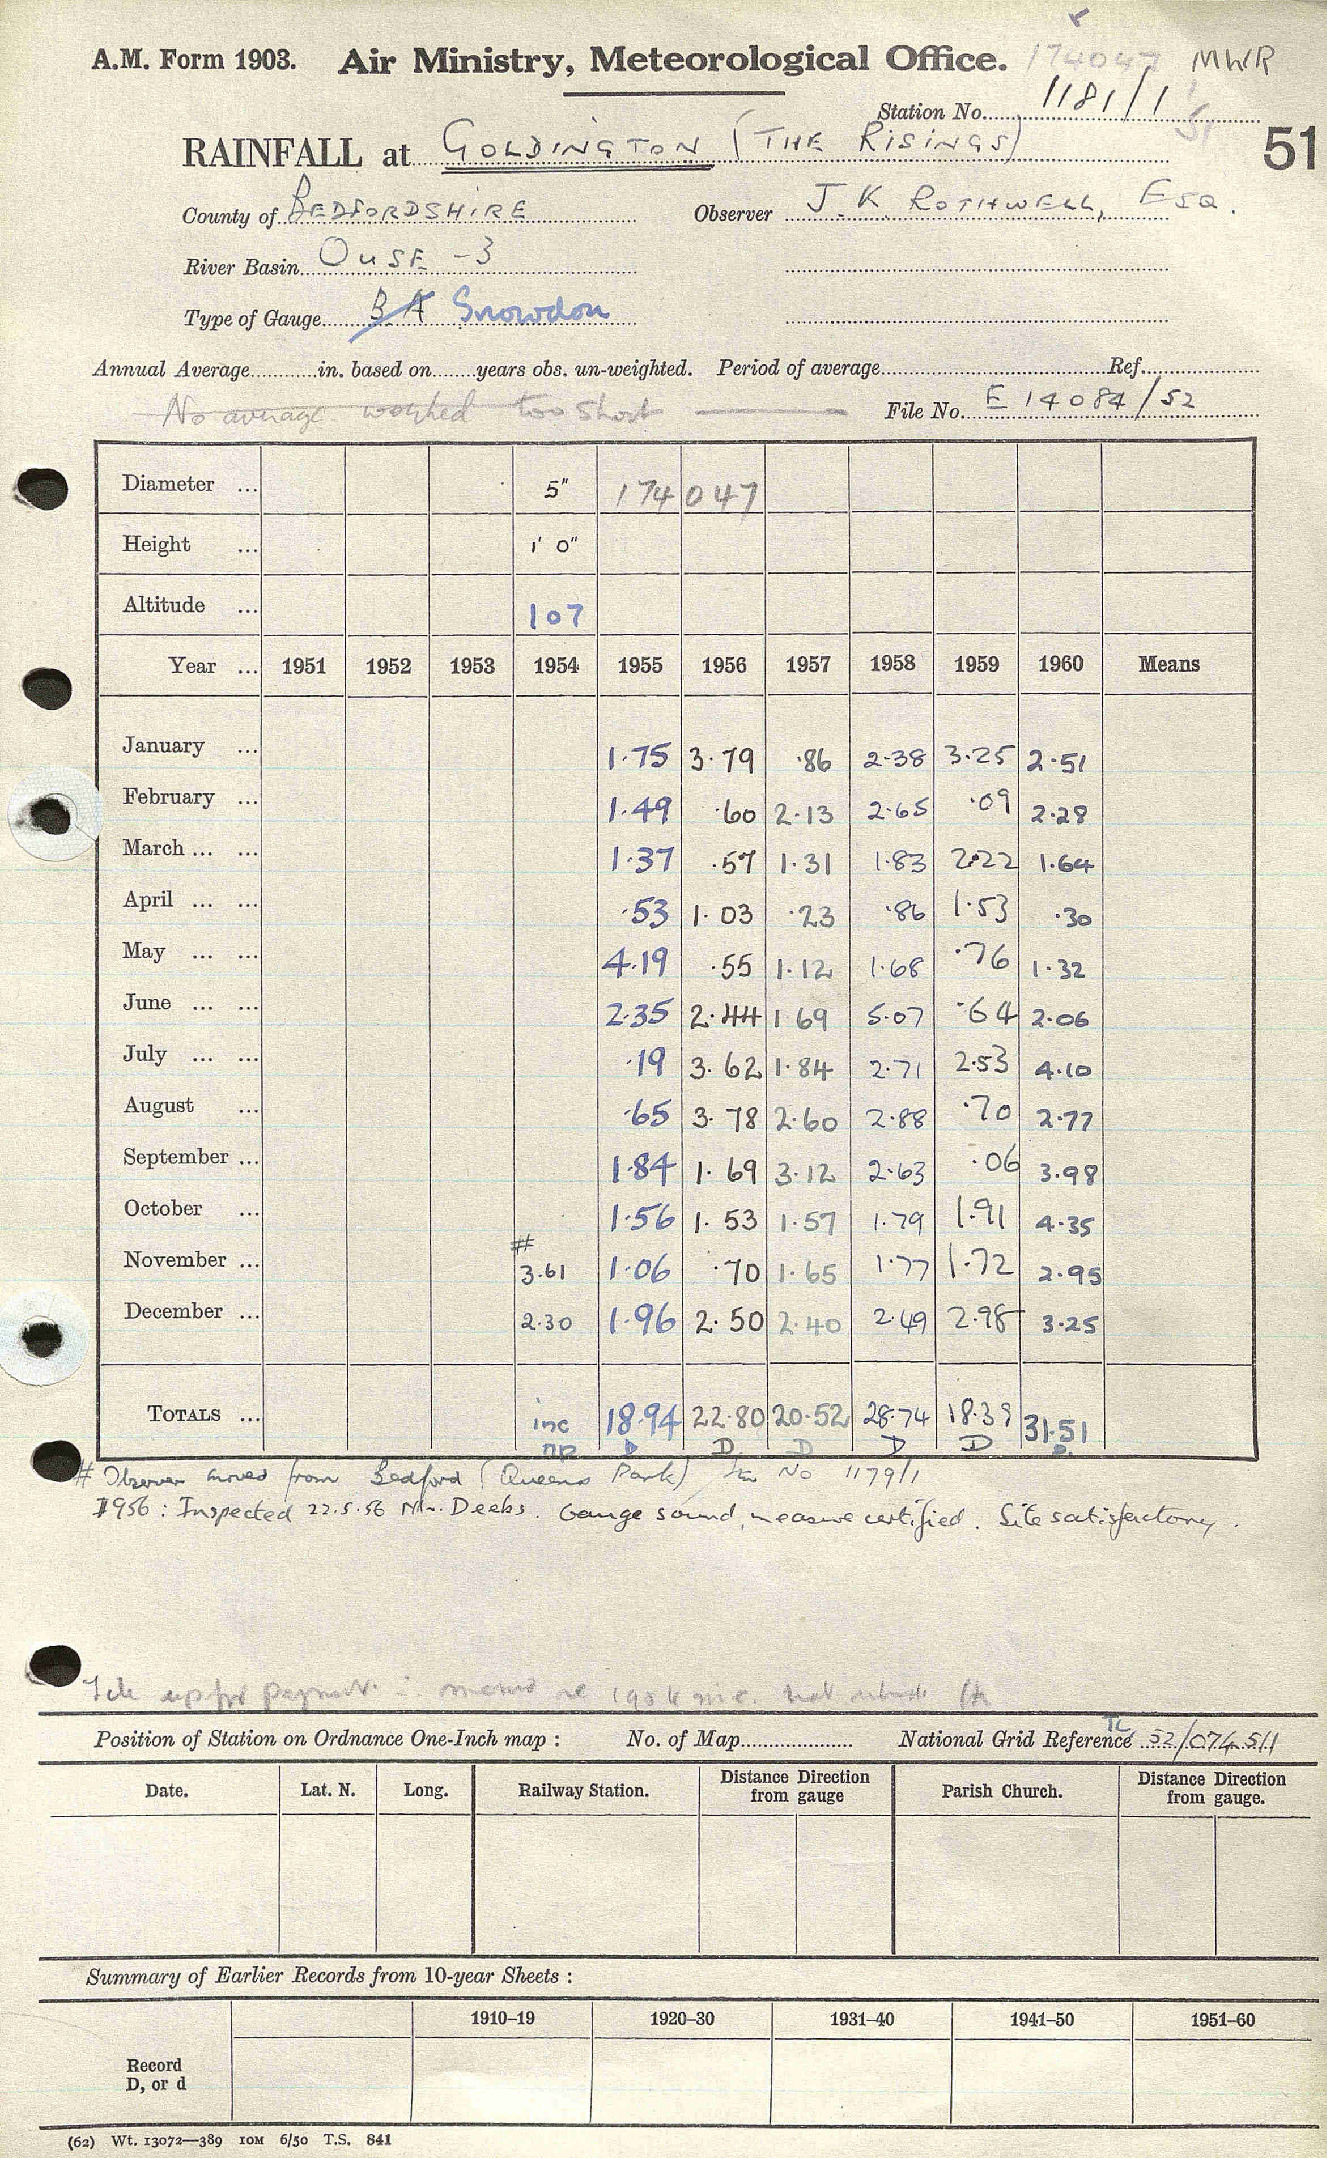 174047 MWR
A.M. Form 1903. Air Ministry, Meteorological Office.
Station No. 1181/1
RAINFALL at GOLDINGTON (THE RISINGS)
51
County of BEDFORDSHIRE Observer J. K. ROTHWELL, ESQ.
River Basin OUSE - 3
Type of Gauge BA Snowdon
Annual Average in. based on years obs. un-weighted. Period of average Ref.
No average worked too short File No. E 14084/52
Diameter ... 5" 174047
Height ... 1' 0"
Altitude ... 107
Year ... 1951 1952 1953 1954 1955 1956 1957 1958 1959 1960 Means
January ... 1.75 3.79 .86 2.38 3.25 2.51
February ... 1.49 .60 2.13 2.65 .09 2.28
March ... ... 1.37 .57 1.31 1.83 2.22 1.64
April ... ... .53 1.03 .23 .86 1.53 .30
May ... ... 4.19 .55 1.12 1.68 .76 1.32
June ... ... 2.35 2.44 1.69 5.07 .64 2.06
July ... ... .19 3.62 1.84 2.71 2.53 4.10
August ... .65 3.78 2.60 2.88 .70 2.77
September ... 1.84 1.69 3.12 2.63 .06 3.98
October ... 1.56 1.53 1.57 1.79 1.91 4.35
#
November ... 3.61 1.06 .70 1.65 1.77 1.72 2.95
December ... 2.30 1.96 2.50 2.40 2.49 2.98 3.25
TOTALS ... inc 18.94 22.80 20.52 28.74 18.39 31.51
np D D D D D D.
# Observer moved from Bedford (Queens Park) Stn No 1179/1
1956 : Inspected 22.5.56 Mr. Deeks. Gauge sound, measure certified. Site satisfactory.
Position of Station on Ordnance One-Inch map : No. of Map National Grid Reference TL 52/074511
Date. Lat. N. Long. Railway Station. Distance Direction from gauge Parish Church. Distance Direction from gauge.
Summary of Earlier Records from 10-year Sheets :
1910–19 1920–30 1931–40 1941–50 1951–60
Record
D, or d
(62) Wt. 13072—389 10M 6/50 T.S. 841